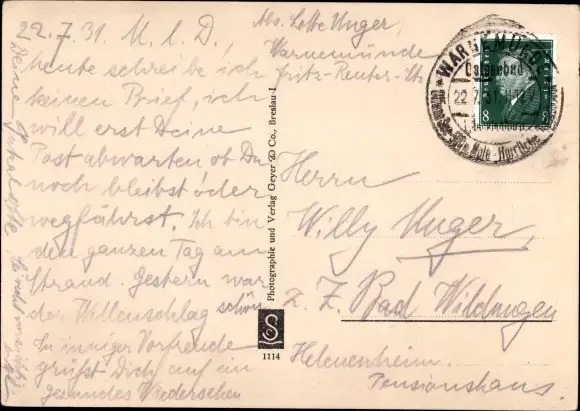 22.7.31. M. l. D.,
heute schreibe ich
keinen Brief, ich
will erst Deine
Post abwarten ob Du
noch bleibst oder
wegfährst. Ich bin
den ganzen Tag am
Strand. Gestern war
der Wellenschlag schön.
In inniger Vorfreude
grüßt Dich auf ein
gesundes Wiedersehen
Deine
Abs. Lotte Unger,
Warnemünde
Fritz-Reuter-Str.
WARNEMÜNDE
Ostseebad
22.7.31.
8
Herrn
Willy Unger,
z. Z. Bad Wildungen
Helenenheim
Pensionshaus.
Photographie und Verlag Geyer & Co., Breslau-I
1114